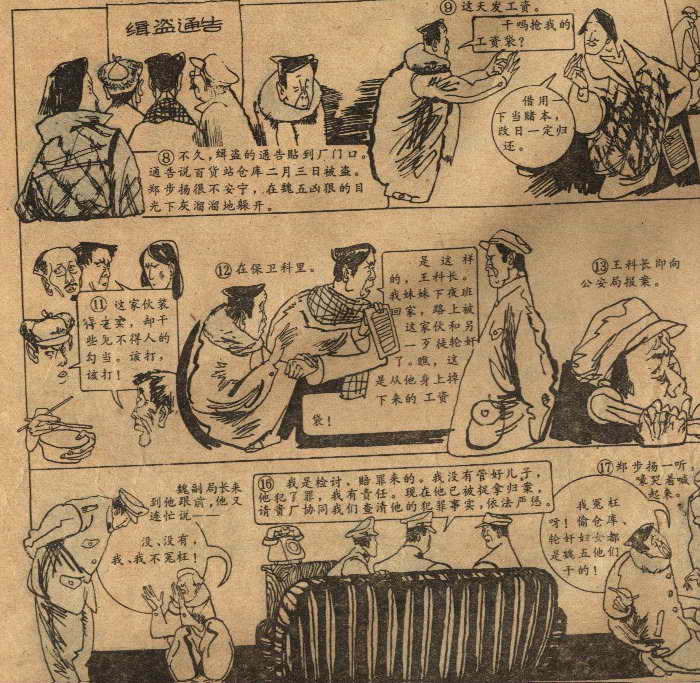 缉盗通告
⑧不久,缉盗的通告贴到厂门口。
通告说百货站仓库二月三日被盗。
郑步扬很不安宁,在魏五凶狠的目
光下灰溜溜地躲开。
⑨这天发工资。
干吗抢我的
工资袋?
借用一
下当赌本,
改日一定归
还。
⑪ 这家伙装
得老实,却干
些见不得人的
勾当。该打,
该打!
⑫在保卫科里。
是这样
的,王科长。
我妹妹下夜班
回家,路上被
这家伙和另
一歹徒轮奸
了。瞧,这
是从他身上掉
下来的工资
袋!
⑬王科长即向
公安局报案。
魏副局长来
到他跟前,他又
连忙说——
没、没有,
我、我不冤枉!
⑯ 我是检讨,赔罪来的。我没有管好儿子,
他犯了罪,我有责任。现在他已被捉拿归案,
请贵厂协同我们查清他的犯罪事实,依法严惩。
⑰郑步扬一听,
嚎哭着喊
起来。
我冤枉
呀!偷仓库、
轮奸妇女都
是魏五他们
干的!